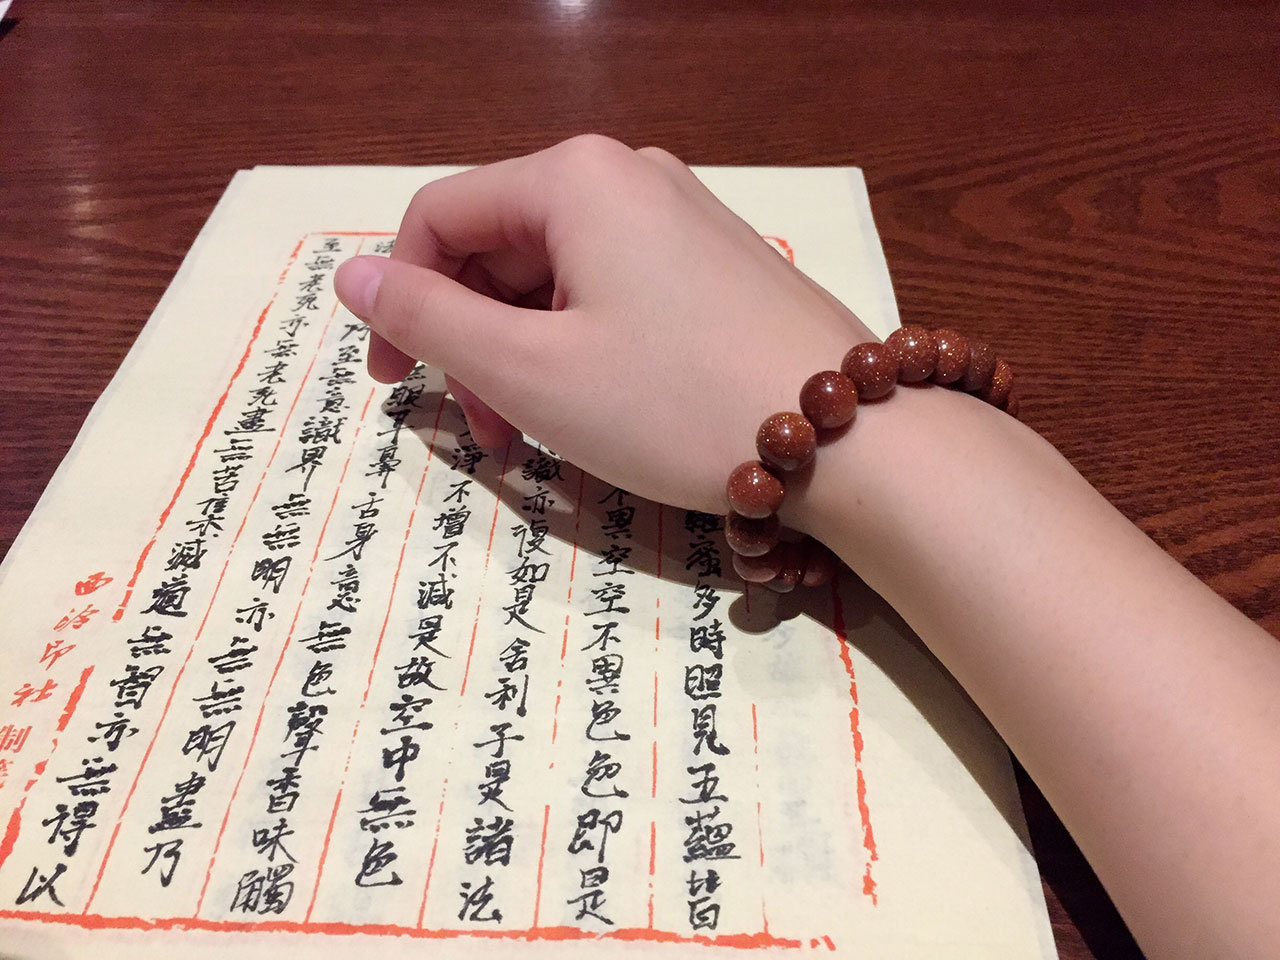 羅蜜多時照見五蘊皆
不異空空不異色色即是
識亦復如是舍利子是諸法
淨不增不減是故空中無色
無眼耳鼻舌身意無色聲香味觸
法乃至無意識界無無明亦無無明盡乃
至無老死亦無老死盡無苦集滅道無智亦無得以
西泠印社制